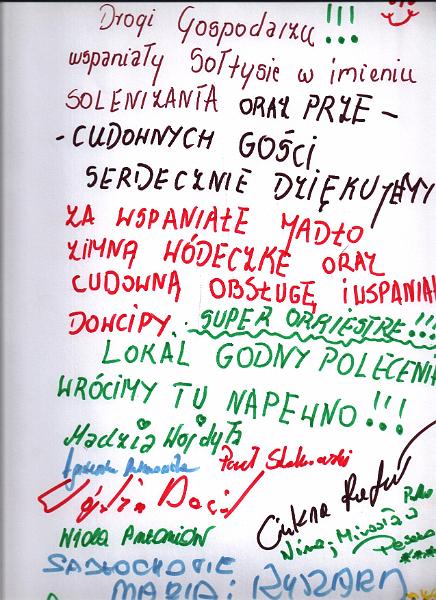 Drogi Gospodarzu !!!
wspaniały Sołtysie w imieniu
SOLENIZANTA ORAZ PRZE-
-CUDOWNYCH GOŚCI
SERDECZNIE DZIĘKUJEMY
ZA WSPANIAŁE JADŁO
ZIMNĄ WÓDECZKE ORAZ
CUDOWNĄ OBSŁUGĘ I WSPANIA
DOWCIPY. SUPER ORKIESTRE!!!
LOKAL GODNY POLECENIA
WRÓCIMY TU NAPEWNO!!!
Madzia Wojdyła
Paweł
WIOLA ANTONIÓW
Nina, Mirosław
SADŁOCHOWIE
MARIA i RYSZARD